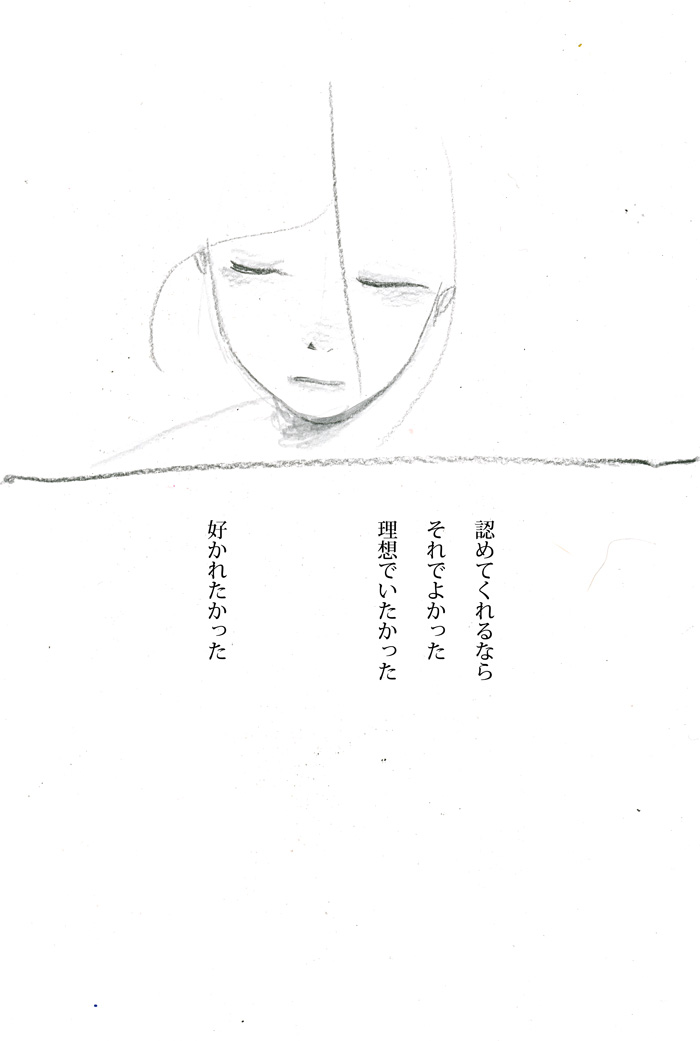 認めてくれるなら
それでよかった
理想でいたかった
好かれたかった